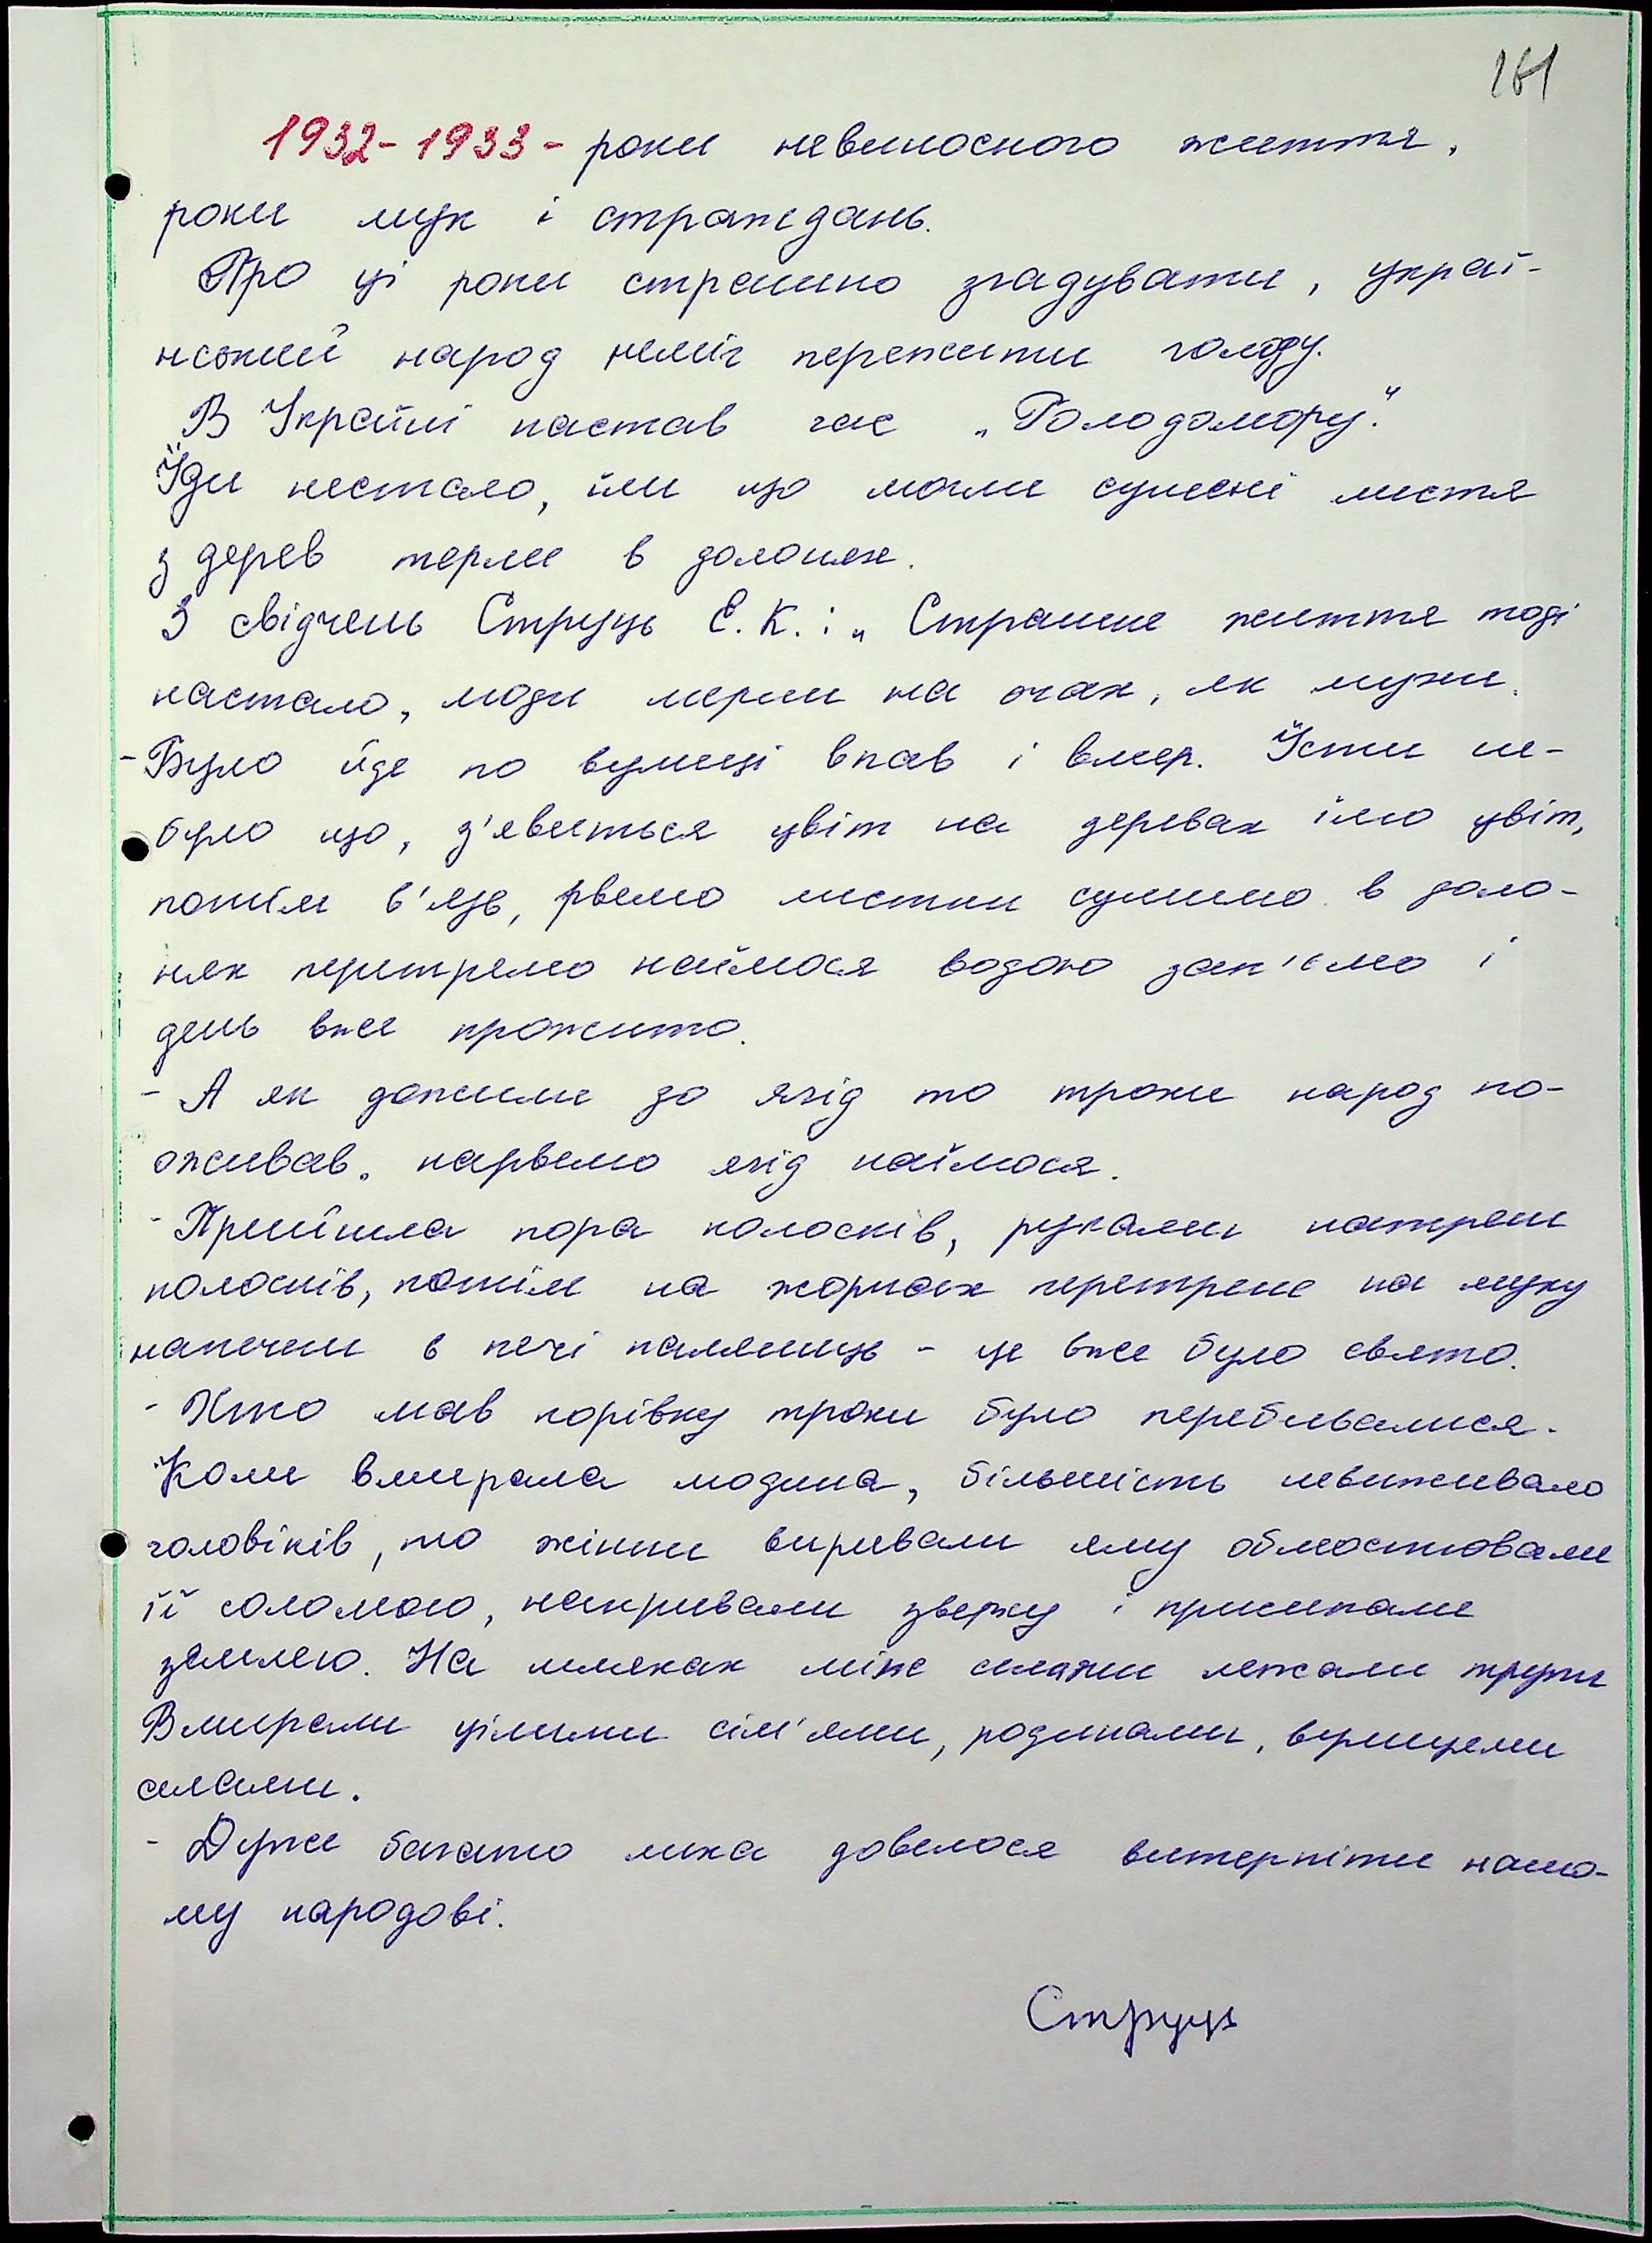 161
1932-1933- роки невиносного життя,
роки мук і страждань.
Про ці роки страшно згадувати, украї-
нський народ неміг пережити голоду.
В Україні настав час „Голодомору".
Їди нестало, їли що могли сушені листя
з дерев терли в долонях.
З свідчень Струць Є. К. : „ Страшне життя тоді
настало, люди мерли на очах, як мухи.
- Було йде по вулиці впав і вмер. Їсти не-
було що, з'явиться цвіт на деревах їмо цвіт,
потім в'язь, рвемо листки сушимо в доло-
нях перетремо наїмося водою зап'ємо і
день вже прожито.
- А як дожили до ягід то трохи народ по-
оживав. нарвемо ягід наїмося.
- Прийшла пора колосків, руками натреш
колосків, потім на жорнах перетреш на муку
напечеш в печі паляниць - це вже було свято.
- Хто мав корівку трохи було перебивалися.
Коли вмирала людина, більшість невиживало
чоловіків, то жінки виривали яму обмостювали
її соломою, накривали зверху і присипали
землею. На шляхах між селами лежали трупи
Вмирали цілими сім'ями, родинами, вулицями
селами.
- Дуже багато лиха довелося витерпіти нашо-
му народові.
Струць